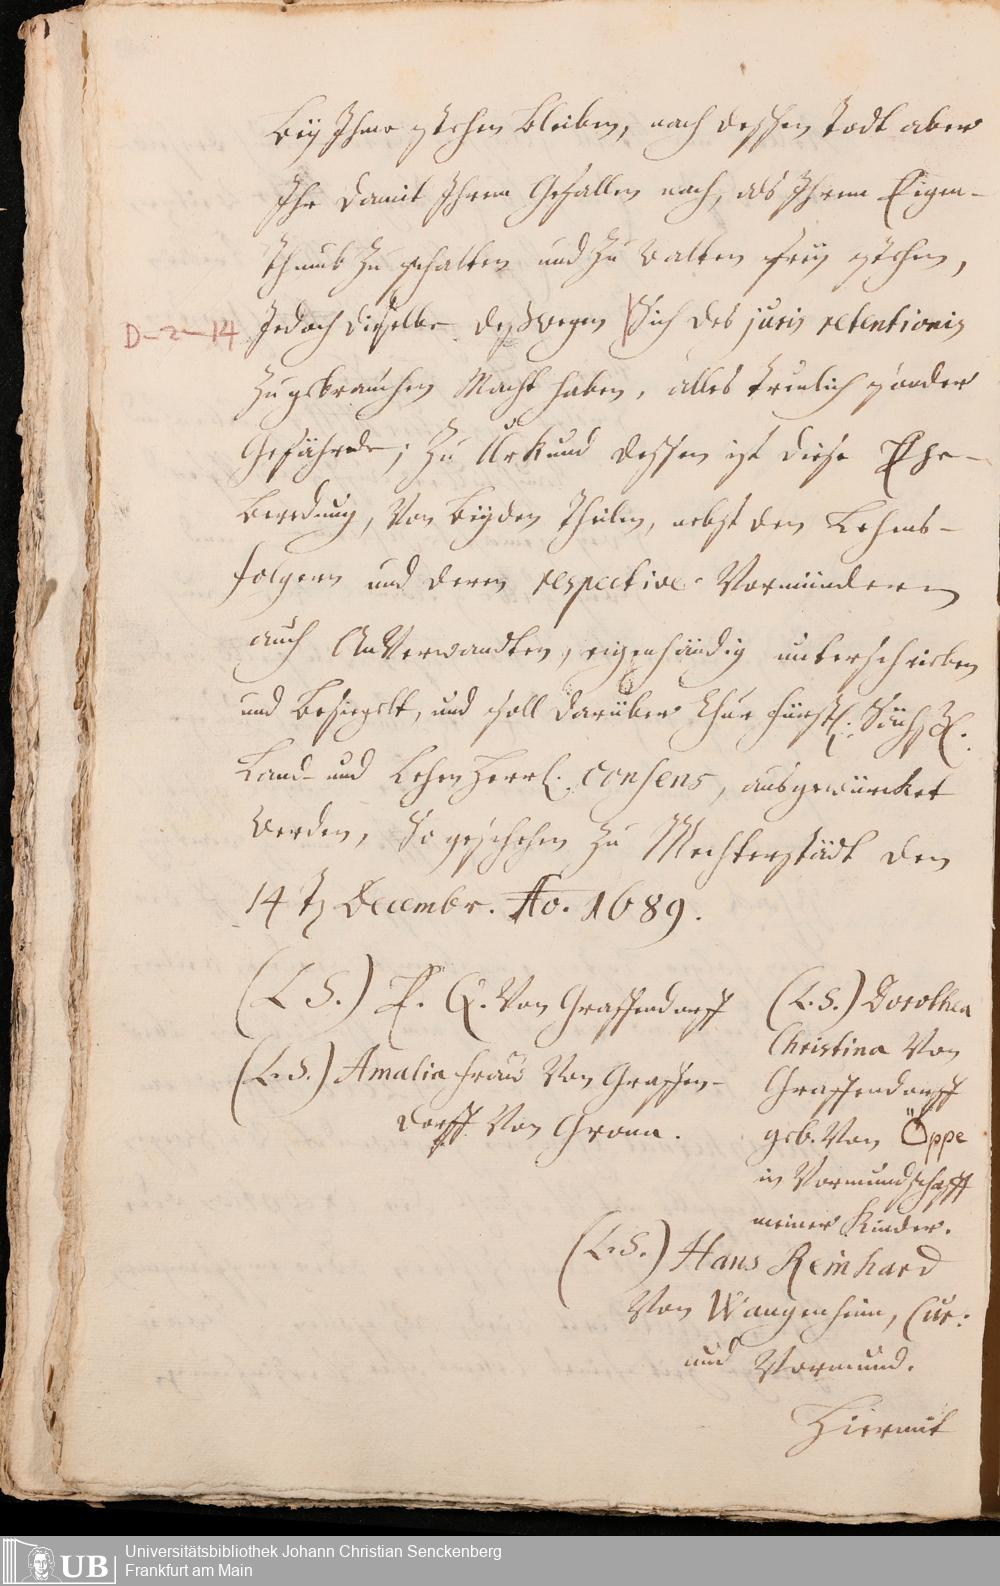 bey Ihme stehen bleiben, nach dessen Todt aber
Ihr damit Ihrem Gefallen nach, als Ihrem Eigen-
thumb zu schalten und zu walten frey stehen,
D-2-14 Jedoch dieselbe deßwegen sich des juris retentionis
zugebrauchen Macht haben, alles treulich sonder
Gefährde; Zu Urkund dessen ist diese Ehe-
beredung, Von beyden Theilen, nebst den Lehens-
folgern und deren respective Vormündern
auch Anverwandten, eigenhändig unterschrieben
und besiegelt, und soll darüber Chur Fürstl. Sächß.
Land- und Lehen Herrl. Consens, ausgewürcket
werden, So geschehen zu Mechterstädt den
14 Decembr. Ao. 1689.
(L. S.) E. C. Von Graffendorff
(L. S.) Amalia Frau Von Graffen-
dorff Von Grona.
(L. S.) Dorothea
Christina Von
Graffendorff
geb. Von Öppe
in Vormundschafft
meiner Kinder.
(L. S.) Hans Reinhard
Von Wangenheim, Cur:
und Vormund.
Hiermit
UB
Universitätsbibliothek Johann Christian Senckenberg
Frankfurt am Main